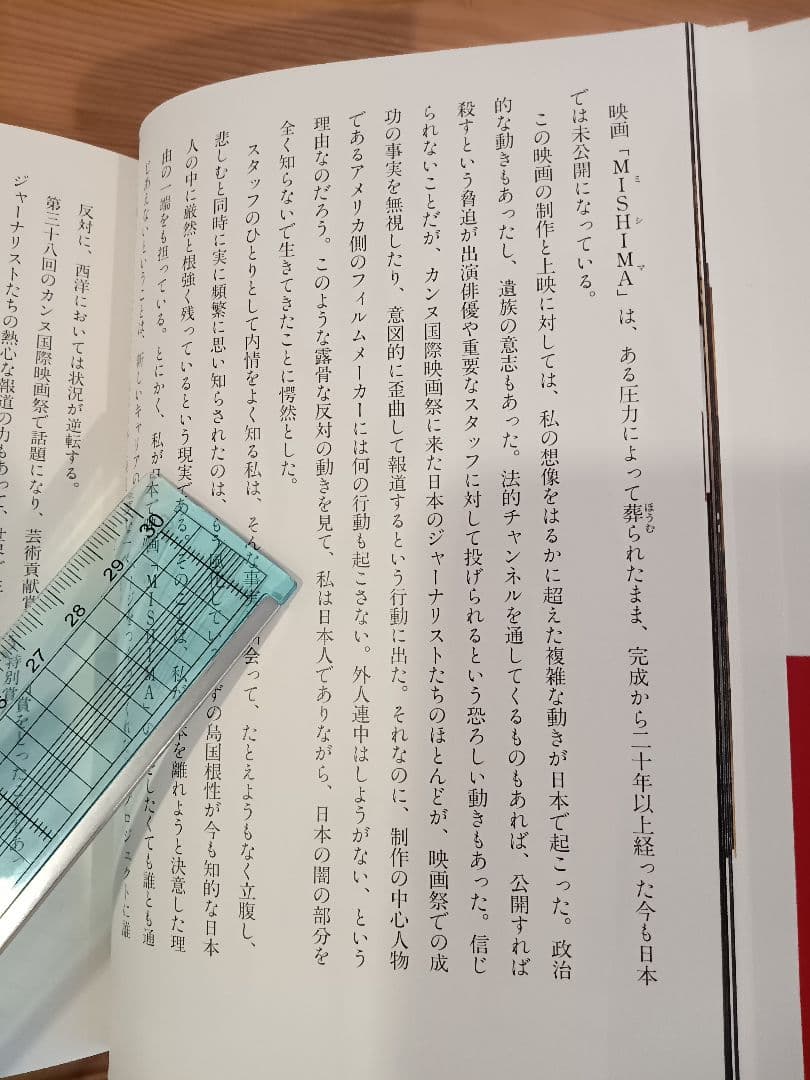 映画「MISHIMA」は、ある圧力によって葬られたまま、完成から二十年以上経った今も日本
では未公開になっている。
この映画の制作と上映に対しては、私の想像をはるかに超えた複雑な動きが日本で起こった。政治
的な動きもあったし、遺族の意志もあった。法的チャンネルを通してくるものもあれば、公開すれば
殺すという脅迫が出演俳優や重要なスタッフに対して投げられるという恐ろしい動きもあった。信じ
られないことだが、カンヌ国際映画祭に来た日本のジャーナリストたちのほとんどが、映画祭での成
功の事実を無視したり、意図的に歪曲して報道するという行動に出た。それなのに、制作の中心人物
であるアメリカ側のフィルムメーカーには何の行動も起こさない。外人連中はしようがない、という
理由なのだろう。このような露骨な反対の動きを見て、私は日本人でありながら、日本の闇の部分を
全く知らないで生きてきたことに愕然とした。
スタッフのひとりとして内情をよく知る私は、そんな事 会って、たとえようもなく立腹し、
悲しむと同時に実に頻繁に思い知らされたのは、もう風化してい ずの島国根性が今も知的な日本
人の中に厳然と根強く残っているという現実である。そのことは、私が 本を離れようと決意した理
由の一端をも担っている。とにかく、私が日本で映画「MISHIMA」の したくても誰とも通
じあえないということは、新しいキャリアの プロジェクトに誰
反対に、西洋においては状況が逆転する。
第三十八回のカンヌ国際映画祭で話題になり、芸術貢献賞 特別賞
ジャーナリストたちの熱心な報道の力もあって、世界で
30
29
28
27